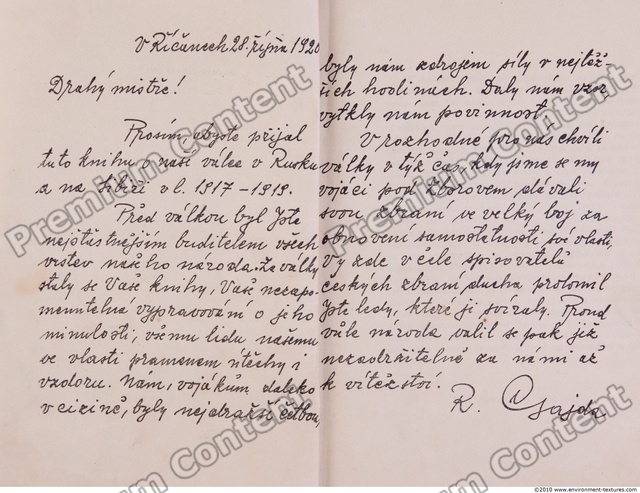 V Říčanech 28. října 1920
Drahý mistře!
Prosím, abyste přijal
tuto knihu o naší válce v Rusku
a na Sibiři v l. 1917-1919.
Před válkou byl Jste
nejšťastnějším buditelem všech
vrstev našeho národa. Za války
staly se Vaše knihy, Vaše nezapo-
menutelná vypravování o jeho
minulosti, všemu lidu našemu
ve vlasti pramenem útěchy i
vzdoru. Nám, vojákům daleko
v cizině, byly nejdražší četbou,
byly nám zdrojem síly v nejtěž-
ších hodinách. Daly nám vzor
vytkly nám povinnost.
V rozhodné pro nás chvíli
války v týž čas, kdy jsme se my
vojáci pod Zborovem dávali
svou zbraní ve velký boj za
obnovení samostatnosti své vlasti,
Vy zde v čele spisovatelů
českých zbraní ducha prolomil
Jste ledy, které ji svíraly. Proud
vůle národa valil se pak již
nezadržitelně za námi až
k vítězství.
R. Gajda.
Premium Content
©2010 www.environment-textures.com